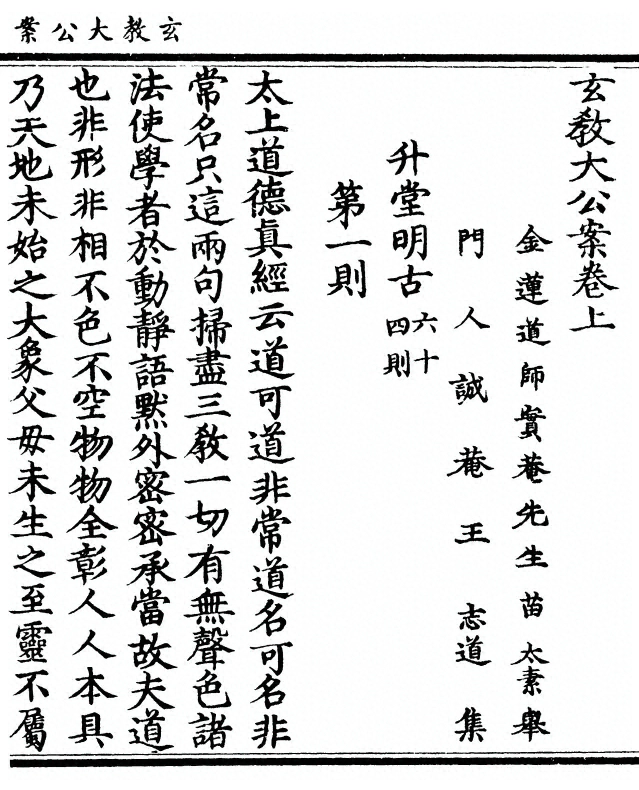 玄教大公案
玄教大公案卷上
金蓮道師實菴先生苗太素舉
門人誠菴王志道集
升堂明古六十四則
第一則
太上道德眞經云道可道非常道名可名非
常名只這兩句掃盡三教一切有無聲色諸
法使學者於動靜語默外密密承當故夫道
也非形非相不色不空物物全彰人人本具
乃天地未始之大象父母未生之至靈不屬